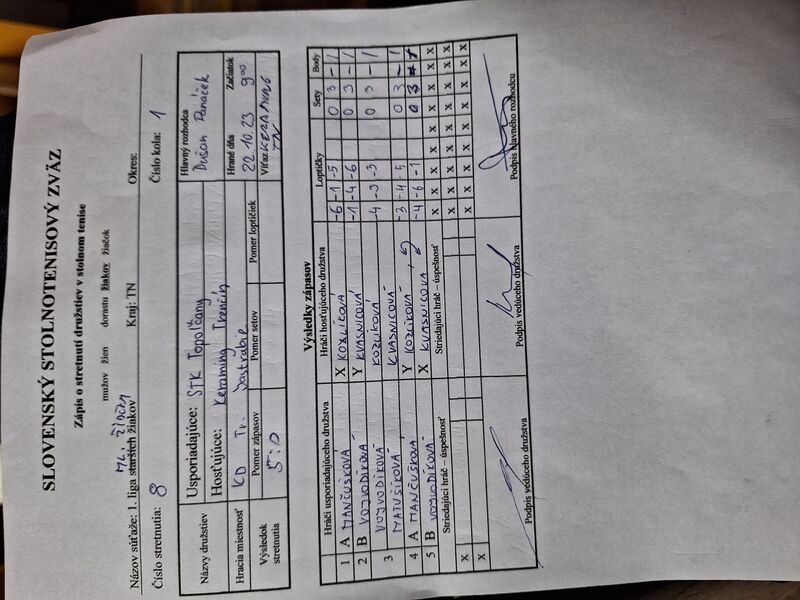 SLOVENSKÝ STOLNOTENISOVÝ ZVÄZ
Zápis o stretnutí družstiev v stolnom tenise
mužov žien dorastu žiakov žiačok
Názov súťaže: 1. liga starších žiakov Kraj: TN Okres:
Číslo stretnutia: 8 Číslo kola: 1
Názvy družstiev Usporiadajúce: STK Topoľčany Hlavný rozhodca
Hosťujúce: Keraming Trenčín Dušan Panáček
Hracia miestnosť KD Tr. Jastrabie Hrané dňa Začiatok
22.10.23 9 00
Výsledok stretnutia Pomer zápasov Pomer setov Pomer loptičiek Víťaz KERAMING TN
5:0
Výsledky zápasov
Hráči usporiadajúceho družstva Hráči hosťujúceho družstva Loptičky Sety Body
1 A MANČUŠKOVÁ X KOZLÍKOVÁ -6 -1 -5 0 3 - 1
2 B VOJVODÍKOVÁ Y KVASNICOVÁ -1 -4 -6 0 3 - 1
3 VOJVODÍKOVÁ KOZLÍKOVÁ -4 -3 -3 0 3 - 1
MATUŠÍKOVÁ KVASNICOVÁ
4 A MANČUŠKOVÁ Y KOZLÍKOVÁ -3 -4 5 0 3 - 1
5 B VOJVODÍKOVÁ X KVASNICOVÁ -4 -6 -1 0 3
Striedajúci hráč – úspešnosť Striedajúci hráč – úspešnosť X X X X X X X X X
X X X X X X X X X X
X X X X X X X X X X
Podpis vedúceho družstva Podpis vedúceho družstva Podpis hlavného rozhodcu